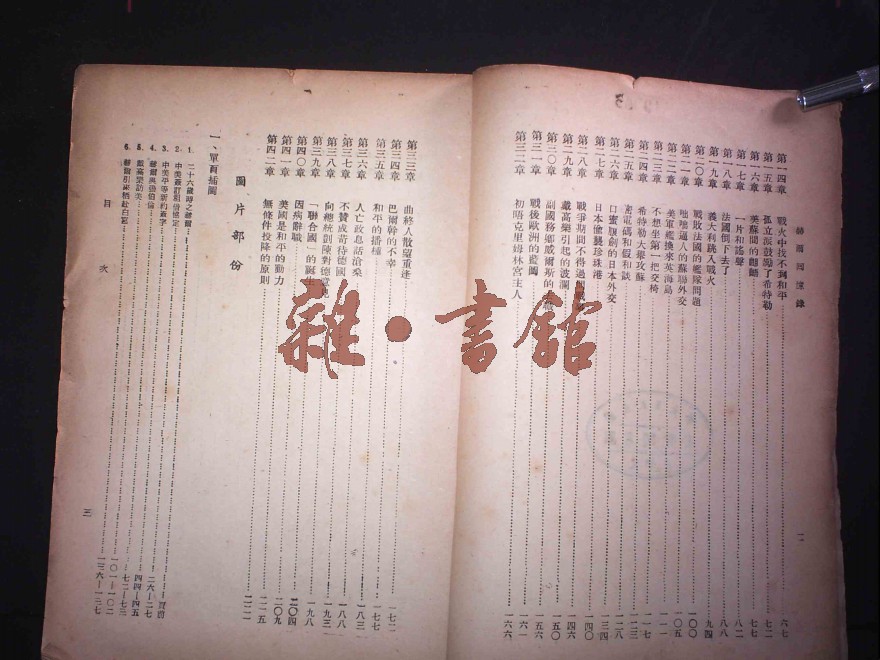 赫爾回憶錄
第一四章 戰火中找不到和平 六七
第一五章 孤立派鼓勵了希特勒 七二
第一六章 英蘇間的齟齬 七七
第一七章 一片和謠聲 八二
第一八章 法國倒下去了 八八
第一九章 義大利跳入戰火 九四
第二〇章 戰敗法國的艦隊問題 一〇〇
第二一章 咄咄逼人的蘇聯外交 一〇五
第二二章 美軍艦換來英海島 一一一
第二三章 不想坐第一把交椅 一一七
第二四章 希特勒大舉攻蘇
第二五章 密電碼和假和談
第二六章 口蜜腹劍的日本外交 一二八
第二七章 日本偷襲珍珠港 一三四
第二八章 戰爭期間不得過問
第二九章 戴高樂引起的波瀾 一四六
第三〇章 副國務卿威爾斯的 一五〇
第三一章 戰後歐洲的藍圖 一五六
第三二章 初晤克里姆林宮主人 一六六
第三三章 曲終人散望重逢
第三四章 巴爾幹的不幸 一七二
第三五章 和平的播種 一七七
第三六章 人亡政息話滄桑 一八三
第三七章 不贊成苛待德國 一八八
第三八章 向總統剖陳對德意見 一九三
第三九章 「聯合國」的誕生 一九八
第四〇章 因病辭職 二〇四
第四一章 美國是和平的動力 二〇九
第四二章 無條件投降的原則 二一五
圖片部份
一、單頁插圖
1. 二十六歲時之赫爾 頁前
2. 中美簽訂租借協定 二六—二七
3. 中美平等新約簽字 四四—四五
4. 赫爾與邱伯倫 七二—七三
5. 戴高樂訪美 一〇一—一〇二
6. 赫爾引來栖赴白宮 一三六—一三七
目 次
三
雜·書館